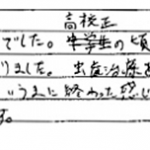 高校正
でした。中学生の頃
りました。虫歯治療を
いうまに終わった感じ
す。